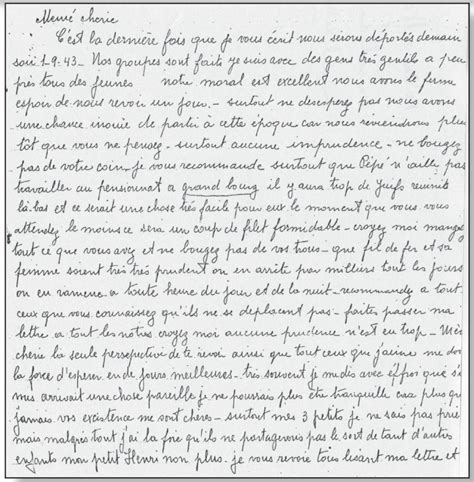 Mémé chérie
C'est la dernière fois que je vous écrit nous serons déportés demain
soir 1-9-43 - Nos groupes sont faits je suis avec des gens très gentils a peu
près tous des jeunes notre moral est excellent nous avons le ferme
espoir de nous revoir un jour - surtout ne desesperez pas nous avons
une chance inouie de partir à cette époque car nous reviendrons plus
tôt que vous ne pensez - surtout aucune imprudence - ne bougez
pas de votre coin - je vous recommande surtout que Pépé n'aille pas
travailler au pensionnat a grand bourg il y aura trop de juifs reunis
là-bas et ce serait une chose très facile pour eux le moment que vous vous
attendez le moins ce sera un coup de filet formidable - croyez moi mangez
tout ce que vous avez et ne bougez pas de vos trous - que fil de fer et sa
femme soient très très prudent on en arrête par milliers tout les jours
on en ramene a toute heure du jour et de la nuit - recommandez a tout
ceux que vous connaissez qu'ils ne se deplacent pas - faites passer ma
lettre a tout les notres croyez moi aucune prudence n'est en trop -
chérie la seule persepective de te revoir ainsi que tout ceux que j'aime me donne
la force d'esperer en de jours meilleures - très souvent je me dis avec effroi que si
mes arrivait une chose pareille je ne pourrais plus être tranquille car plus que
jamais vos existence me sont chères - surtout mes 3 petits je ne sais pas prier
mais malgrès tout j'ai la foie qu'ils ne partagerons pas le sort de tant d'autres
enfants mon petit Henri non plus. je vous revoie tous lisant ma lettre et